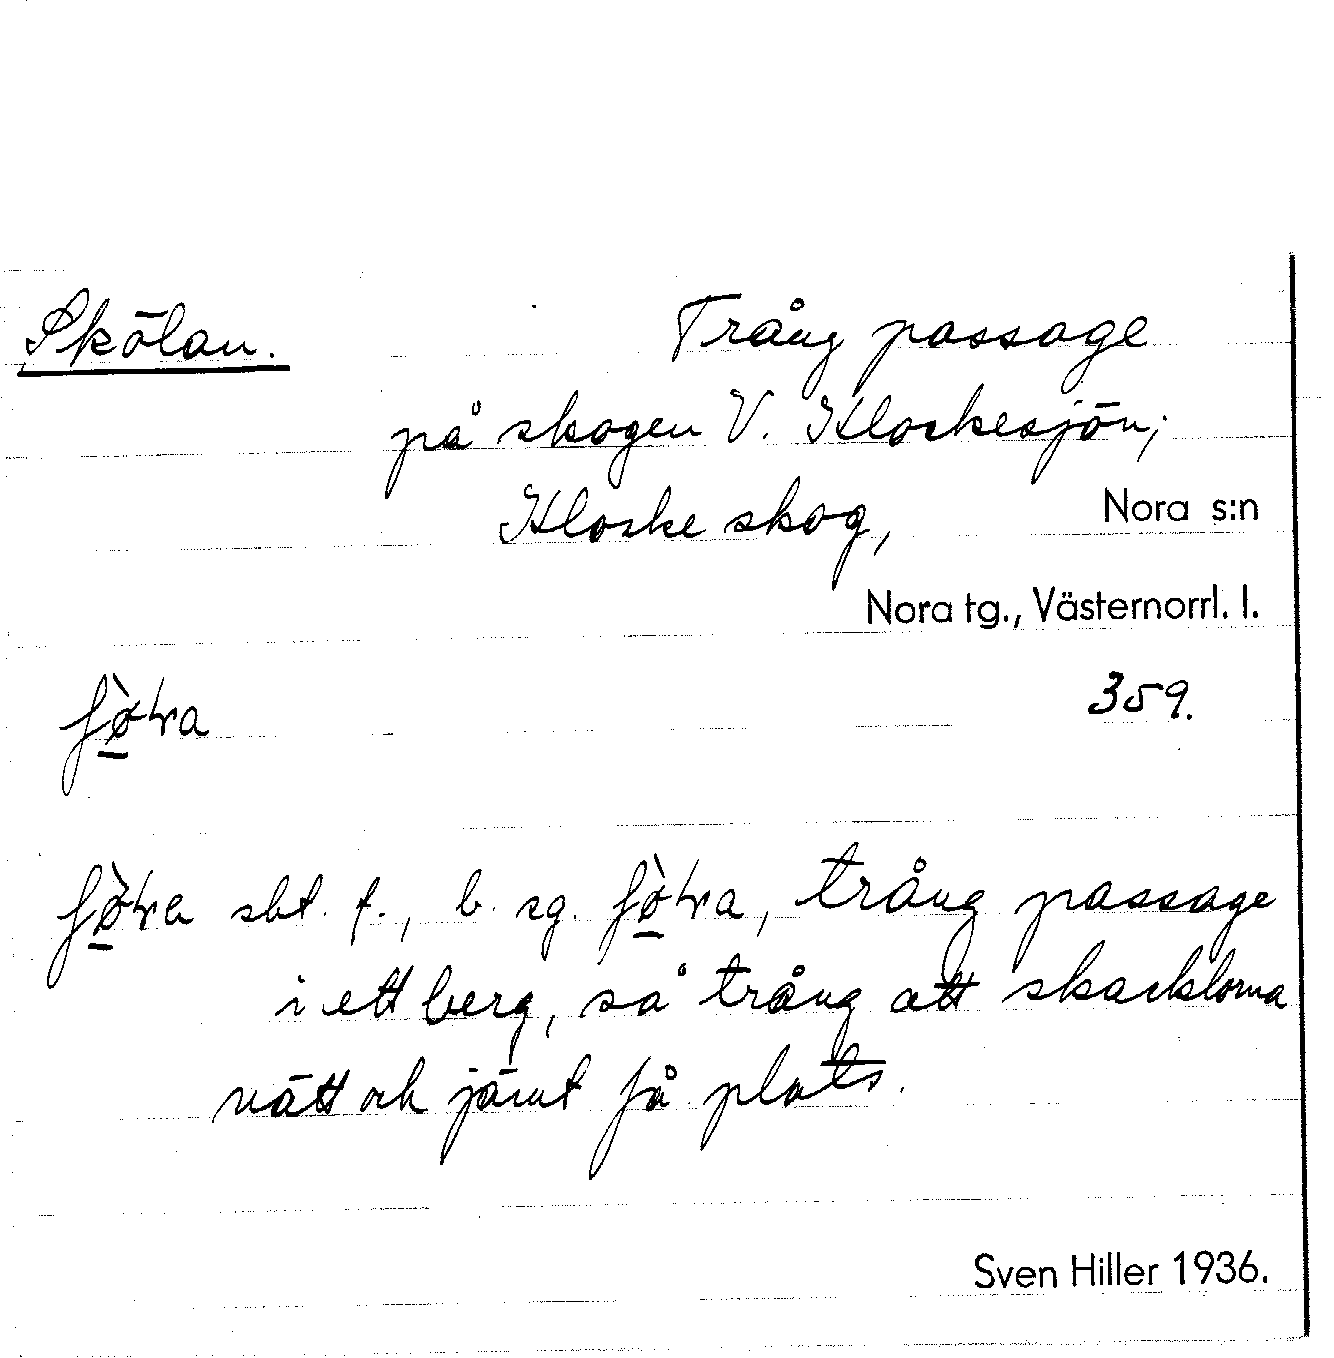 Skölan. Trång passage
på skogen V. Klockesjön;
Klocke skog, Nora s:n
Nora tg., Västernorrl. l.
359.
sbt. f., b. sg. trång passage
i ett berg, så trång att skacklorna
nätt och jämt få plats.
Sven Hiller 1936.